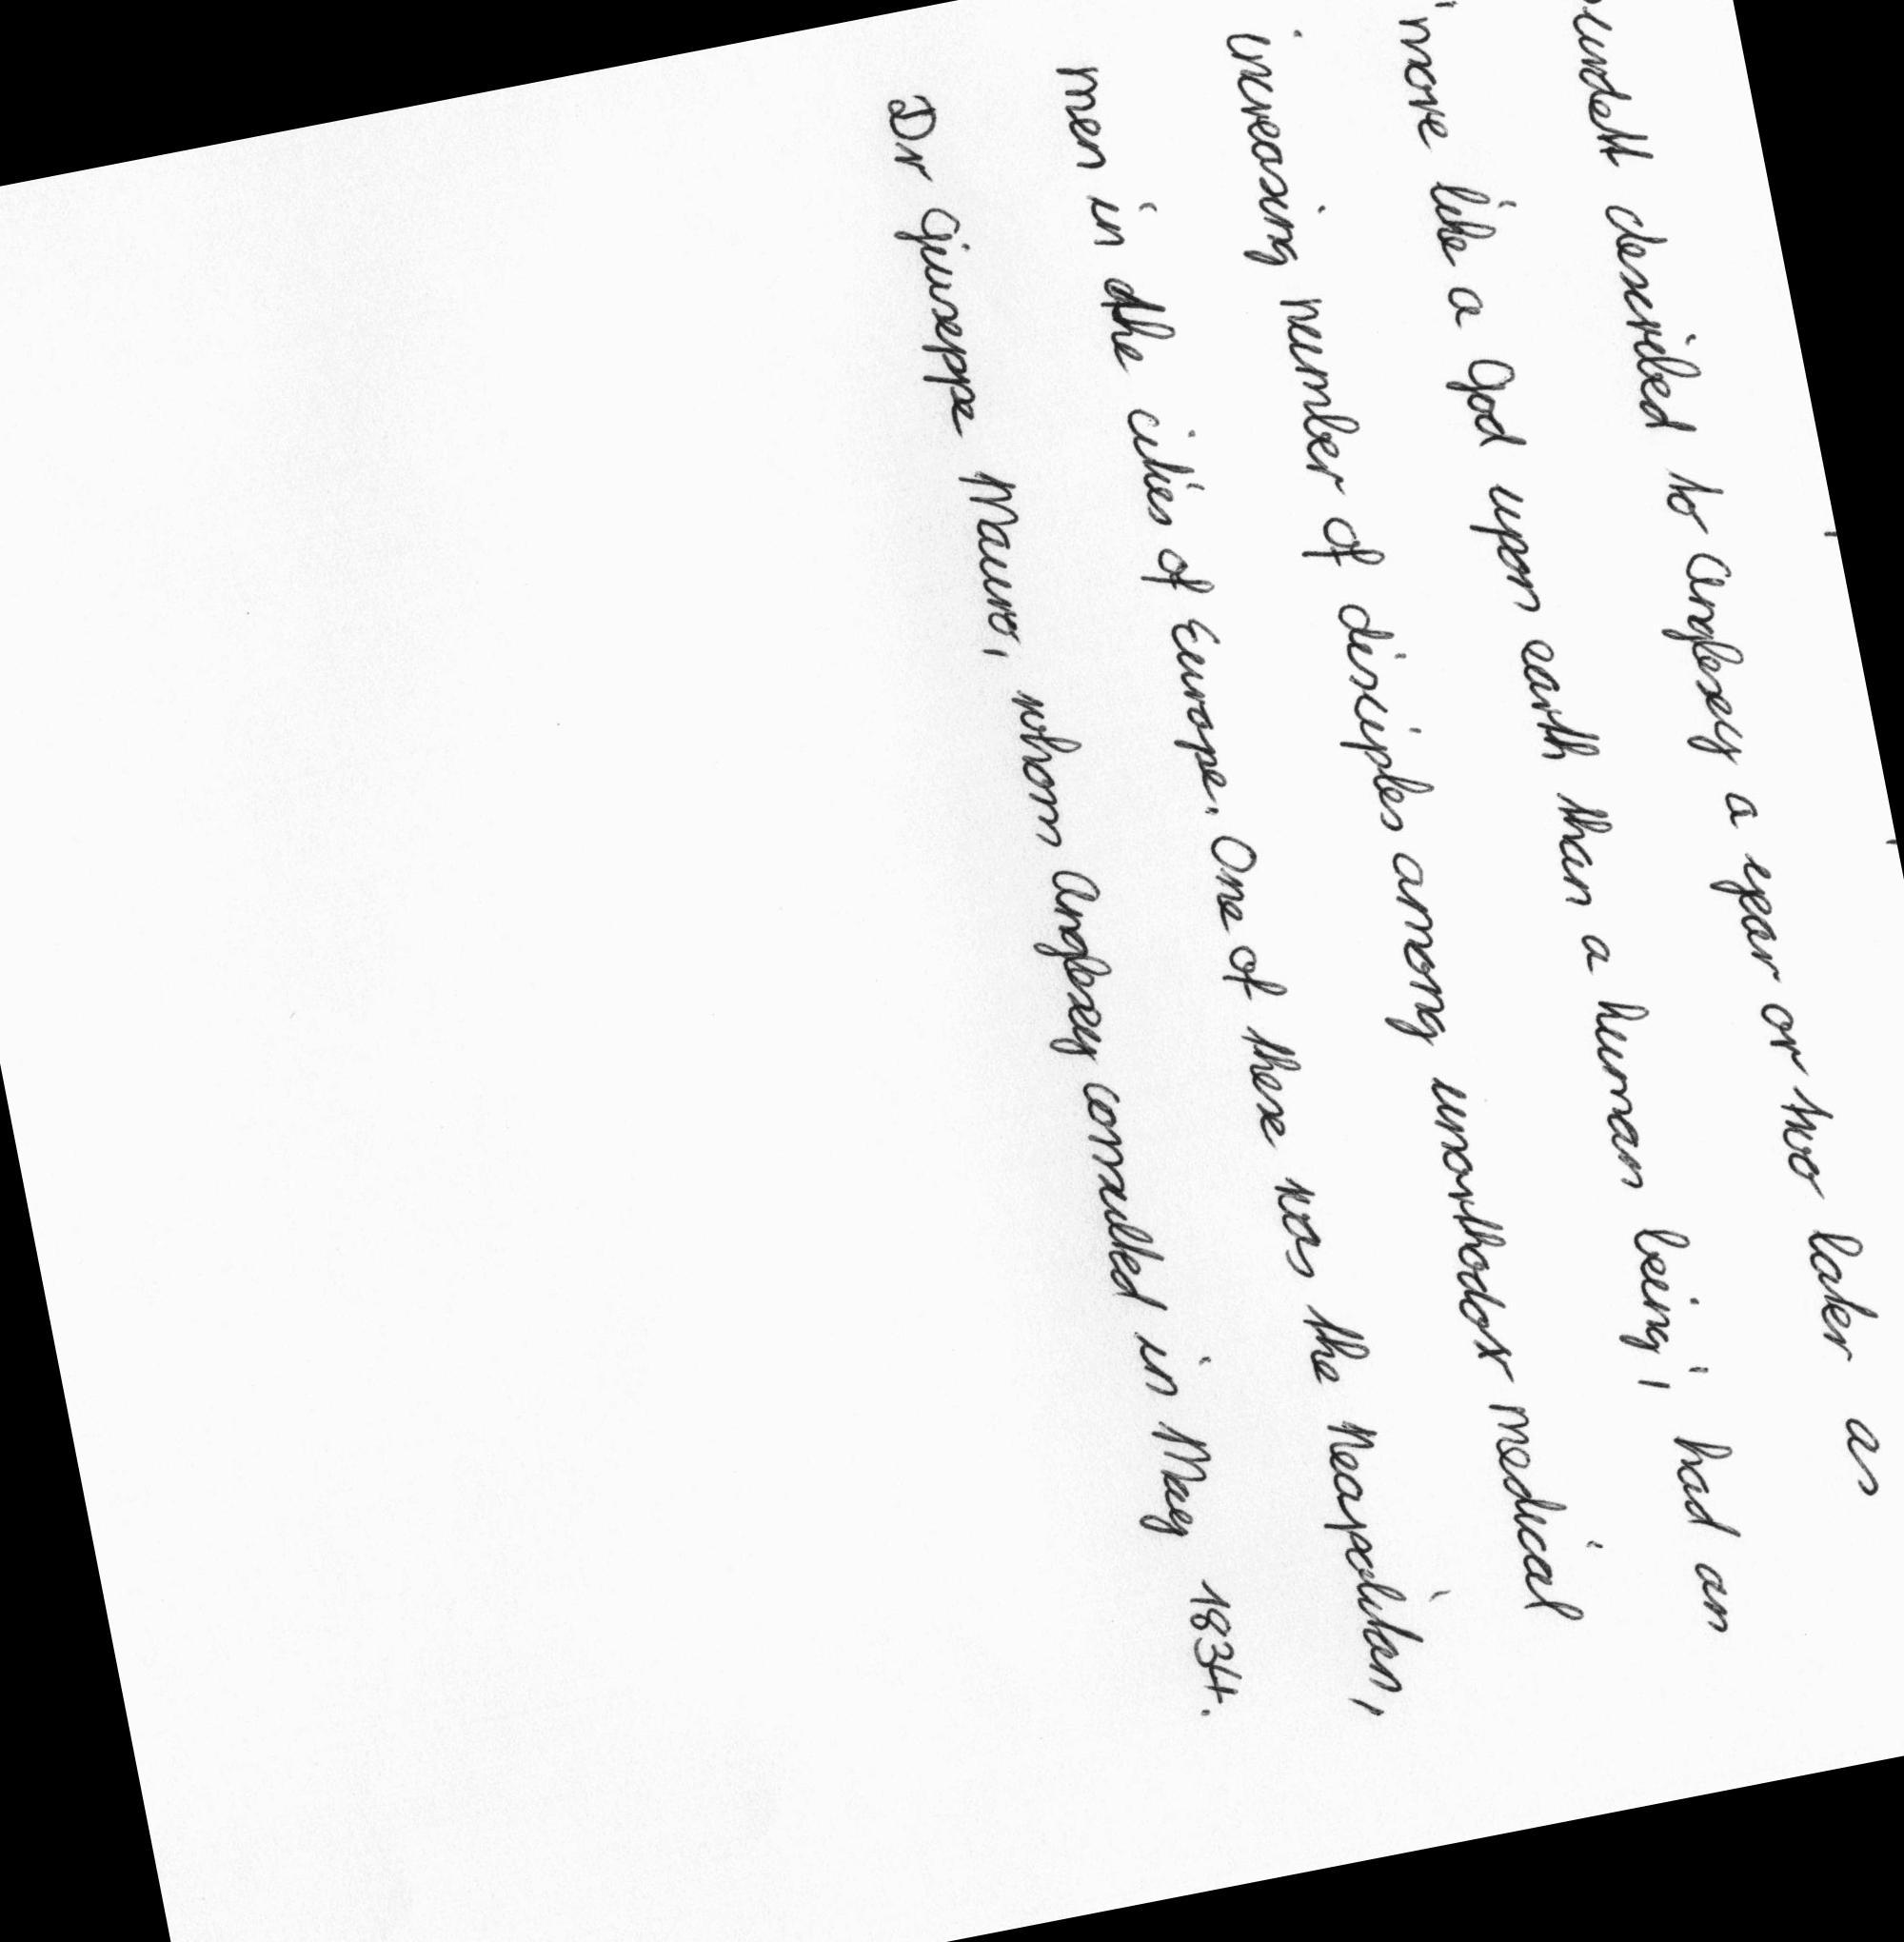 described to Anglesey a year or two later as
'more like a God upon earth than a human being', had an
increasing number of disciples among unorthodox medical
men in the cities of Europe. One of these was the Neapolitan,
Dr Giuseppe Mauro, whom Anglesey consulted in May 1834.